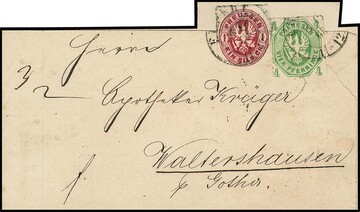 PREUSSEN
EIN SILB. GR.
PREUSSEN
VIER PFENNIGE
4 4
Herrn
Apotheker Krüger
Waltershausen
p Gotha.